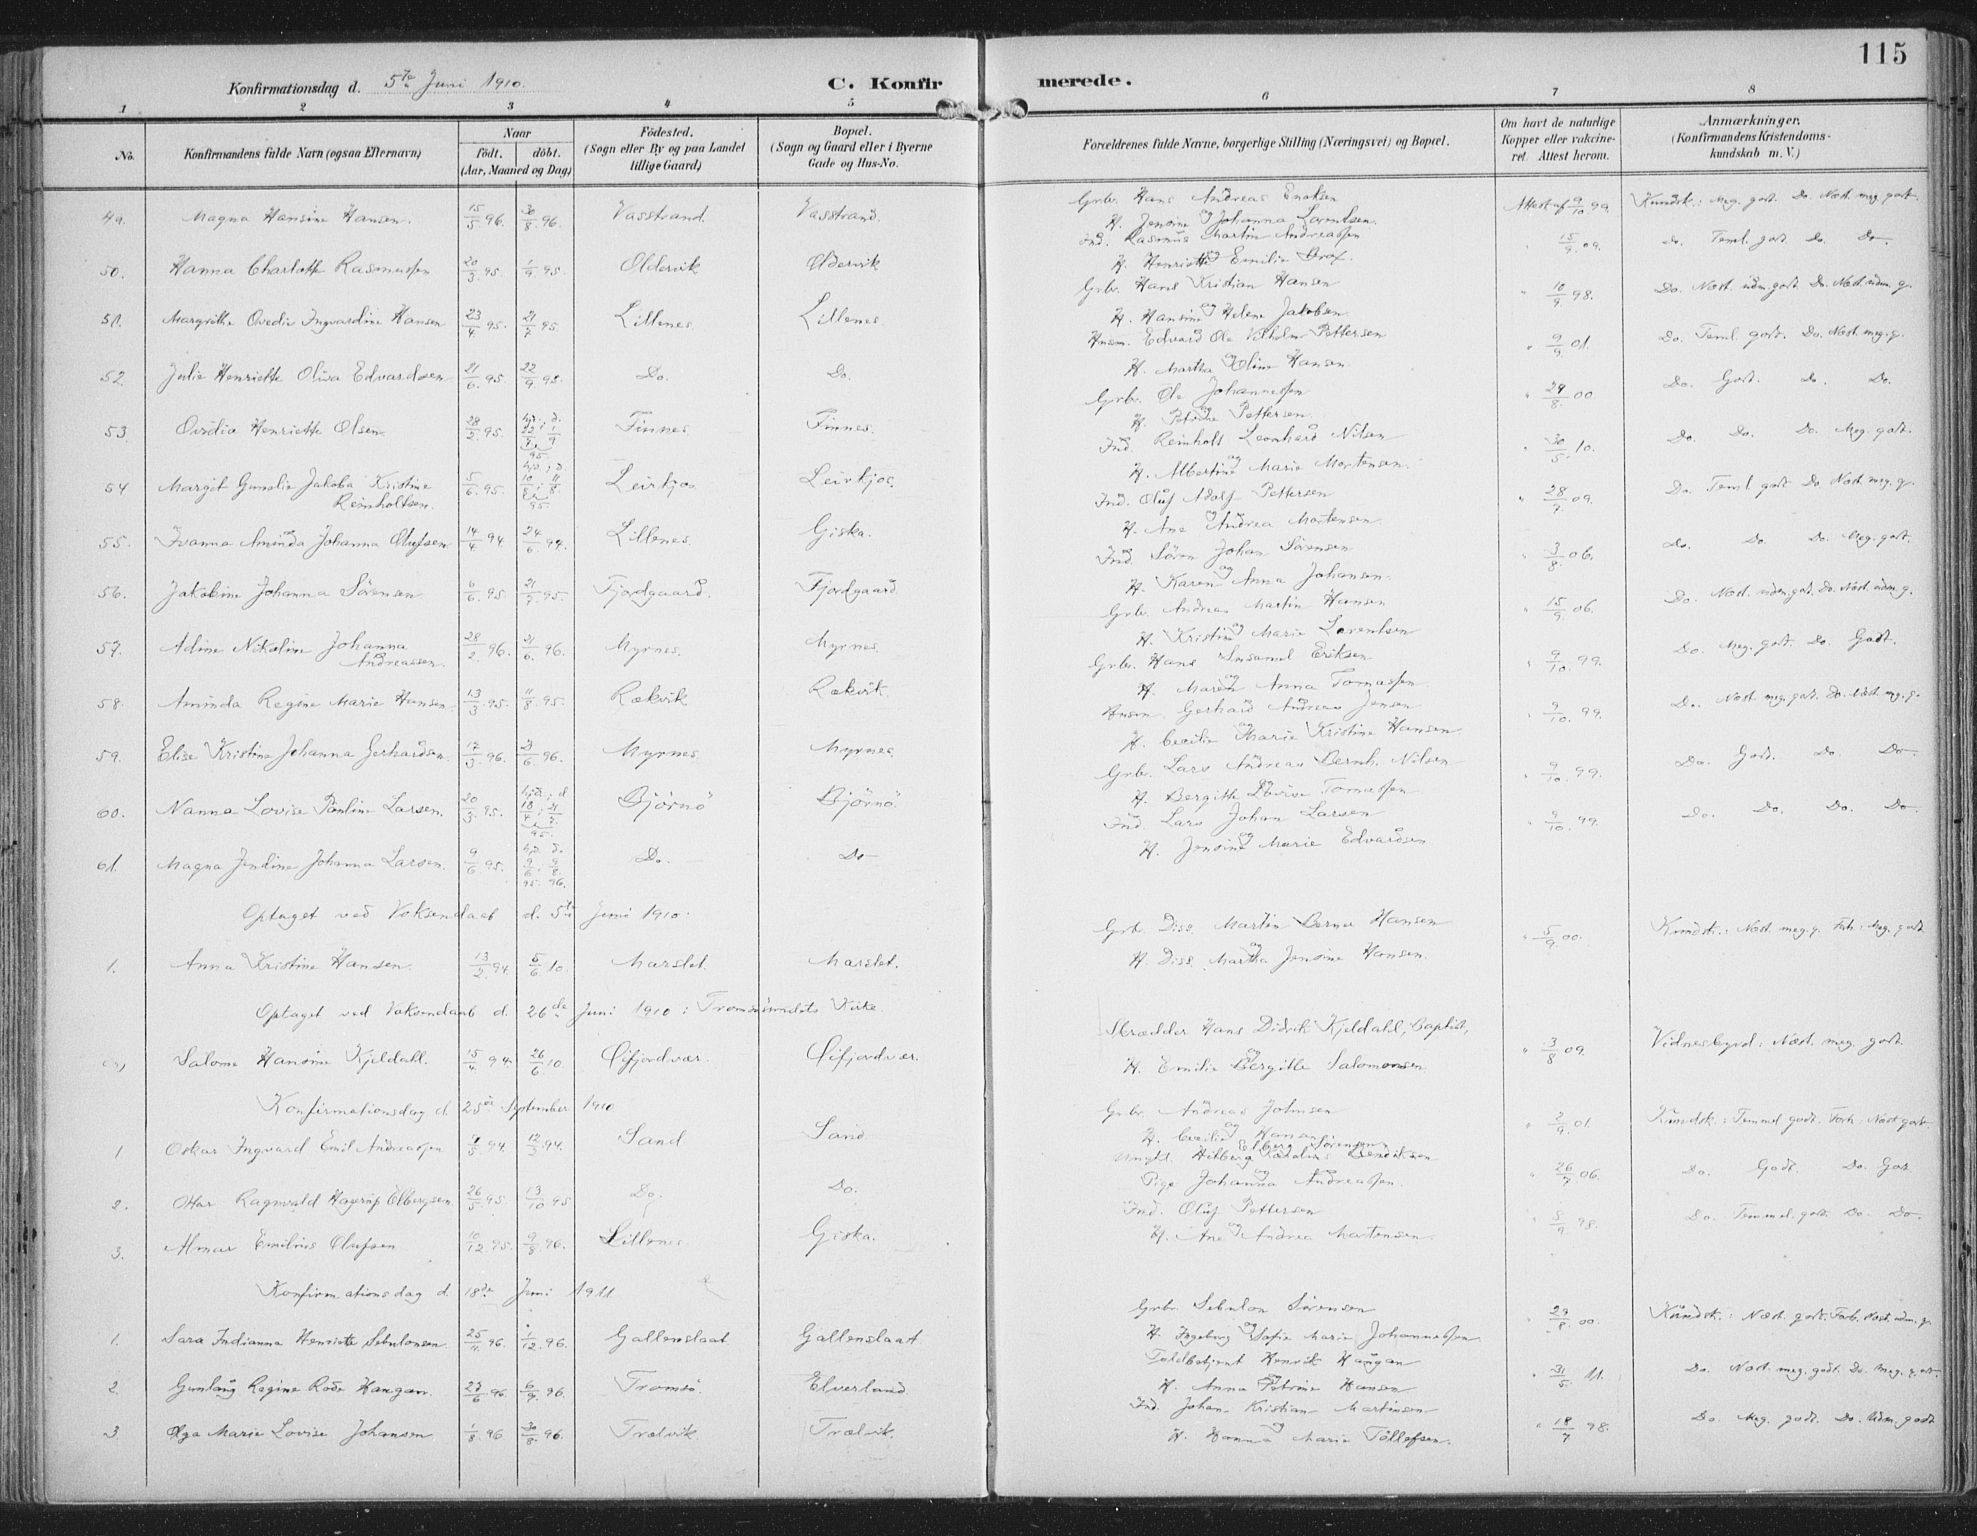 115
Konfirmationsdag d. 5te Juni 1910. C. Konfirmerede.
1 2 3 4 5 6 7 8
No. Konfirmandens fulde Navn (ogsaa Efternavn) Naar födt. döbt. (Aar, Maaned og Dag) Födested. (Sogn eller By og paa Landet tillige Gaard) Bopæl. (Sogn og Gaard eller i Byerne Gade og Hus-No. Forældrenes fulde Navne, borgerlige Stilling (Næringsvei) og Bopæl. Om havt de naturlige Kopper eller vakcineret. Attest herom. Anmærkninger. (Konfirmandens Kristendomskundskab m. V.)
49. Magna Hansine Hansen. 15/5 96. 30/8 96. Vasstrand. Vasstrand. Grbr. Hans Andreas Enoksen og H. Jensine Johanna Lorentsen. Attest af 9/10 99. Kundsk.: Meg. godt. Do. Næst. meg. godt.
50. Hanna Charlotte Rasmussen 20/3 95. 1/9 95. Oldervik Oldervik Ind. Rasmus Martin Andreassen og H. Henriette Emilie Brox. " 15/9 09. Do. Teml. godt. Do. Do.
51. Margrithe Ovedie Ingvardine Hansen 23/4 95. 21/7 95. Lillenes Lillenes Grbr. Hans Kristian Hansen og H. Hansine Helene Jakobsen. " 10/9 98. Do. Næst. udm. godt. Do. Næst. udm. g.
52. Julie Henriette Olisa Edvardsen 21/6 95. 22/9 95. Do. Do. Husm. Edvard Ole Vilhelm Pettersen og H. Martha Oline Hansen. " 9/9 01. Do. Teml. godt. Do. Næst. meg. g.
53. Ovidia Henriette Olsen. 28/2 95. Finnes. Finnes. Grbr. Ole Johannessen og H. Petrine Pettersen. " 29/8 00. Do. Godt. Do. Do.
54 Margit Gunelie Jakoba Kristine Reinholtsen. 5/6 95. hjd.; d. 10/8; 11/8 95 Leirkjos Leirkjos. Ind. Reinholt Leonhard Nilsen og H. Albertine Marie Mortensen. " 30/5 10. Do. Do. Do. Meg. godt.
55. Ivanna Aminda Johanna Olufsen 14/4 94. 24/6 94. Lillenes. Giska. Ind. Oluf Adolf Pettersen og H. Ane Andrea Mortensen. " 28/7 09. Do. Teml. godt Do. Næst meg. g.
56. Jakobine Johanna Sörensen 6/6 95. 21/7 95. Fjordgaard. Fjordgaard. Ind. Sören Johan Sörensen og H. Karen Anna Johansen. " 3/8 06. Do. Do. Do. Meg. godt.
57. Adine Nikoline Johanna Andreassen. 28/2 96. 21/6 96. Myrnes. Myrnes. Grbr. Andreas Martin Hansen og H. Kristine Marie Lorentsen " 15/9 06. Do. Næst. udm. godt. Do. Næst. udm. g.
58. Aminda Regine Marie Hansen 13/3 95. 11/8 95. Rækvik Rækvik. Grbr. Hans Emanuel Eriksen og H. Maren Anna Tomassen. " 9/10 99. Do. Meg. godt. Do. Godt.
59. Elise Kristine Johanna Gerhardsen. 17/3 96. 21/6 96. Myrnes. Myrnes. Husm. Gerhard Andreas Jensen og H. Cecilie Marie Kristine Hansen " 9/10 99. Do. Næst meg. godt. Do. Næst. mg. g.
60. Nanna Lovise Pauline Larsen. 20/3 95. hjd.; d. 18/4; 21/7 95. Björnö Björnö. Grbr. Lars Andreas Bernh. Nilsen H. Bergitte Lovise Tomassen " 9/10 99. Do. Godt. Do. Do.
61. Magna Jensine Johanna Larsen. 9/6 95. hjd. d. 9/6; 9/8 95. 96. Do. Do. Ind. Lars Johan Larsen og H. Jensine Marie Edvardsen " 9/10 99. Do. Do. Do. Do.
Optaget ved Voksendaab d. 5te Juni 1910:
1. Anna Kristine Hansen. 13/2 94. 5/6 10. Marslet. Marslet. Grb. Diss. Martin Berner Hansen og H. Diss. Martha Jensine Hansen. " 5/9 00. Kundsk.: Næst. meg. g. Forh.: Meg. godt
Optaget ved Voksendaab d. 26de Juni 1910: Tromsösundets Kirke.
Salome Hansine Kjeldahl. 15/4 94. 26/6 10. Öifjordvær. Öifjordvær. Skrædder Hans Didrik Kjeldahl, Baptist, og H. Emilie Bergitte Salomonsen. " 3/8 09. Vidnesbyrd: Næst. meg. godt.
Konfirmationsdag d. 25de September 1910
1 Oskar Ingvard Emil Andreassen 9/5 94. 12/3 94. Sand Sand. Grbr. Andreas Johnsen og H. Cecilie Hansen " 2/9 01. Kundsk.: Temmel godt. Forh. Næst godt.
2. Ottar Ragnvald Hagerup Elbergsen 26/5 95. 13/10 95 Do. Do. Ungk. Hilberg Bendiksen og Pige Johanna Andreassen. " 26/7 06. Do. Godt. Do. God
3. Almar Emilius Olufsen 10/12 95. 9/8 96. Lillenes. Giska. Ind. Oluf Pettersen og H. Ane Andrea Mortensen. " 5/9 98. Do. Temmel. godt. Do. Do.
Konfirmationsdag d. 18de Juni 1911
1. Sara Indianna Henriette Sebulonsen 25/4 96. 1/12 96. Gallenslaat Gallenslaat Grbr. Sebulon Sörensen og H. Ingeborg Sofie Marie Johannessen. " 29/8 00. Kundsk.: Næst. godt. Forh. Næst. udm. g.
2. Gunlaug Regine Rode Haugan. 27/6 96. 6/9 96. Tromsö. Elverland Toldbetjent Henrik Haugan og H. Anna Petrine Hansen " 31/5 11. Do. Næst. meg. godt. Do. Meg. godt.
3 Olga Marie Lovise Johansen 1/8 96 30/8 96. Trælvik. Trælvik. Ind. Johan Kristian Martinsen og H. Hanna Marie Tollefsen. " 18/7 98. Do. Meg. godt. Do. Udm. godt